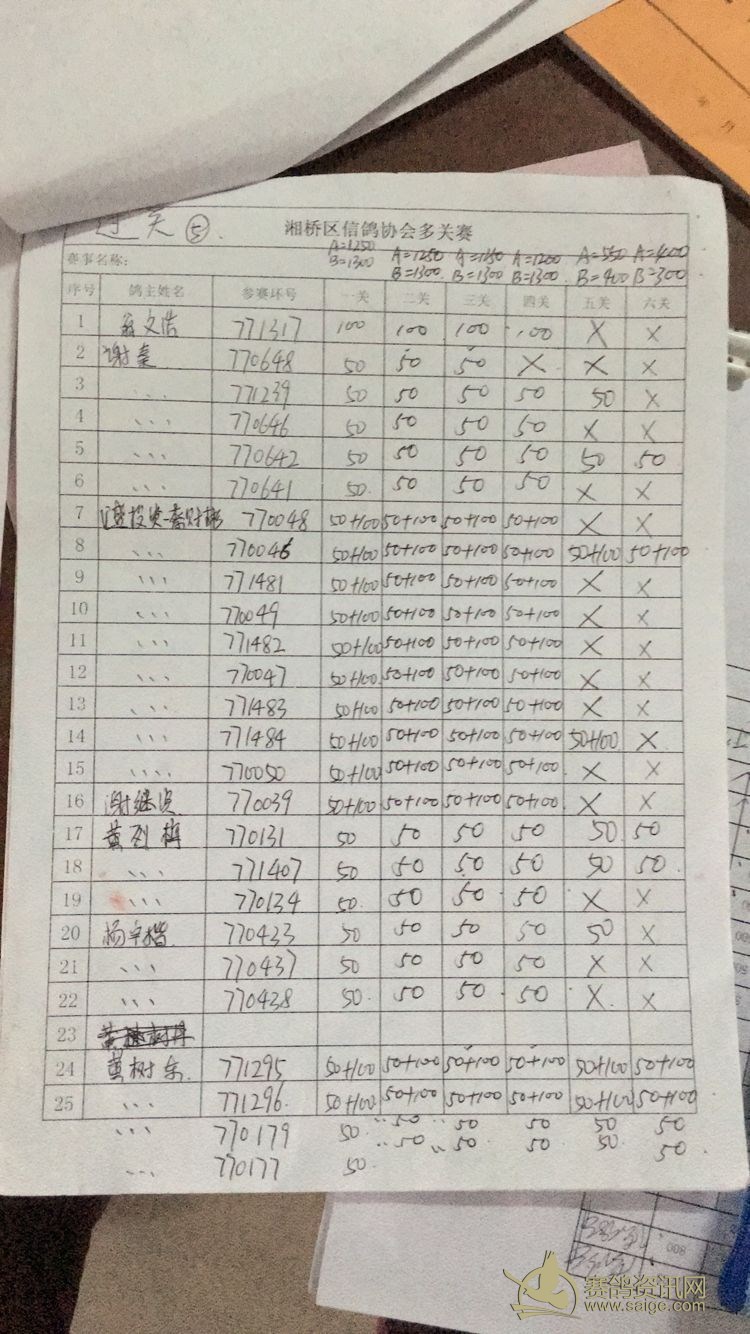 过关 ⑤.
湘桥区信鸽协会多关赛
A=1250 A=1250 A=1250 A=1200 A=550 A=400
赛事名称: B=1300 B=1300 B=1300 B=1300 B=400 B=300
序号 鸽主姓名 参赛环号 一关 二关 三关 四关 五关 六关
1 文浩 771317 100 100 100 100 X X
2 谢 770648 50 50 50 X X X
3 、、、 771239 50 50 50 50 50 X
4 、、、 770646 50 50 50 50 X X
5 、、、 770642 50 50 50 50 50 50
6 、、、 770641 50 50 50 50 X X
7 770048 50+100 50+100 50+100 50+100 X X
8 、、、 770046 50+100 50+100 50+100 50+100 50+100 50+100
9 、、、 771481 50+100 50+100 50+100 50+100 X X
10 、、、 770049 50+100 50+100 50+100 50+100 X X
11 、、、 771482 50+100 50+100 50+100 50+100 X X
12 、、、 770047 50+100 50+100 50+100 50+100 X X
13 、、、 771483 50+100 50+100 50+100 50+100 X X
14 、、、 771484 50+100 50+100 50+100 50+100 50+100 X
15 、、、、 770050 50+100 50+100 50+100 50+100 X X
16 谢继 770039 50+100 50+100 50+100 50+100 X X
17 黄烈 770131 50 50 50 50 50 50
18 、、、 771407 50 50 50 50 50 50
19 、、、 770134 50 50 50 50 X X
20 杨 770433 50 50 50 50 50 X
21 、、、 770437 50 50 50 50 X X
22 、、、 770438 50 50 50 50 X X
23
24 黄树东 771295 50+100 50+100 50+100 50+100 50+100 50+100
25 、、、 771296 50+100 50+100 50+100 50+100 50+100 50+100
、、、 770179 50 50 50 50 50 50
、、、 770177 50 50 50 50 50 50
赛鸽资讯网
www.saigc.com